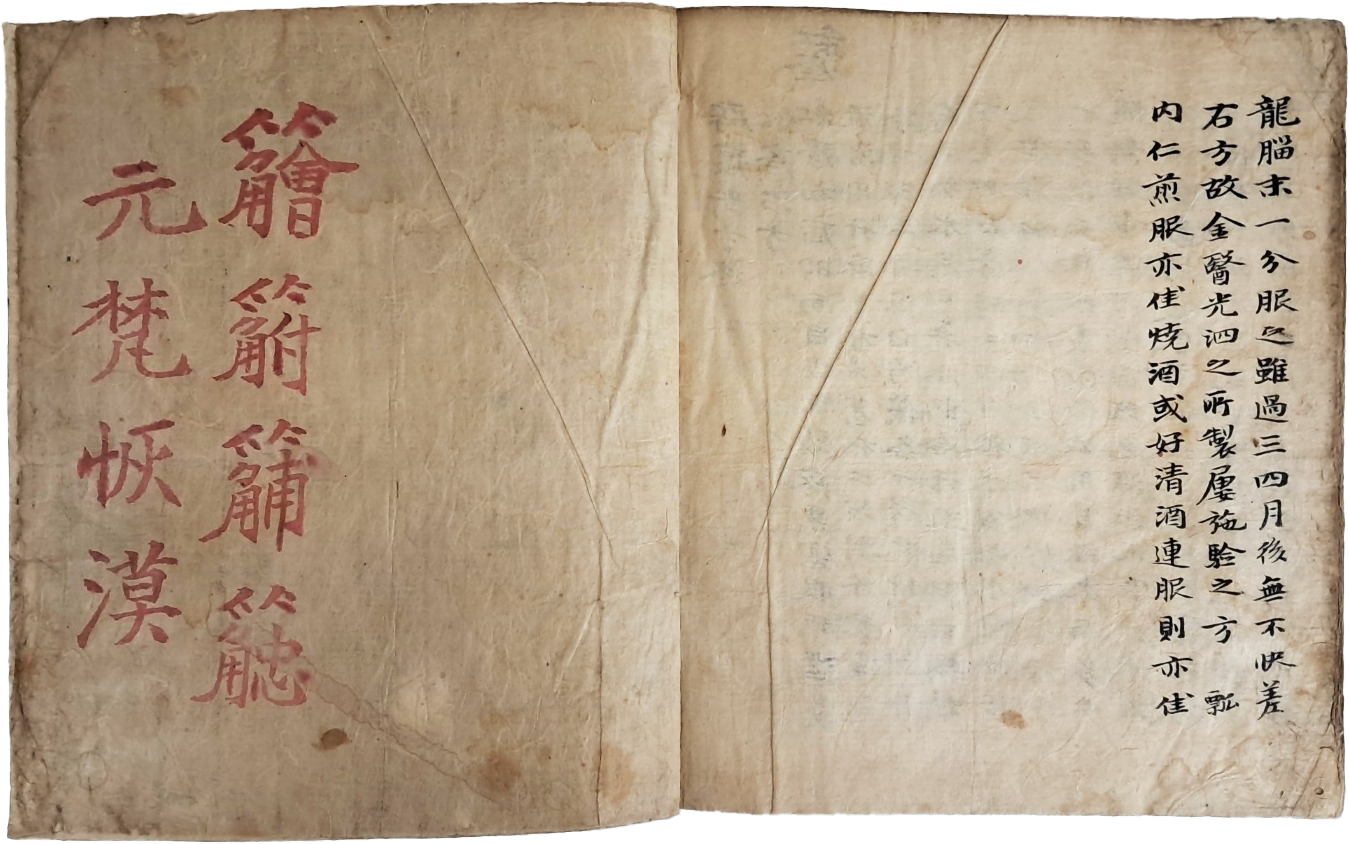 龍腦末一分服之雖過三四月後無不快差
右方故金醫光泗之所製屢施驗之方 瓢
内仁煎服亦佳燒酒或好清酒連服則亦佳
元梵恢漠